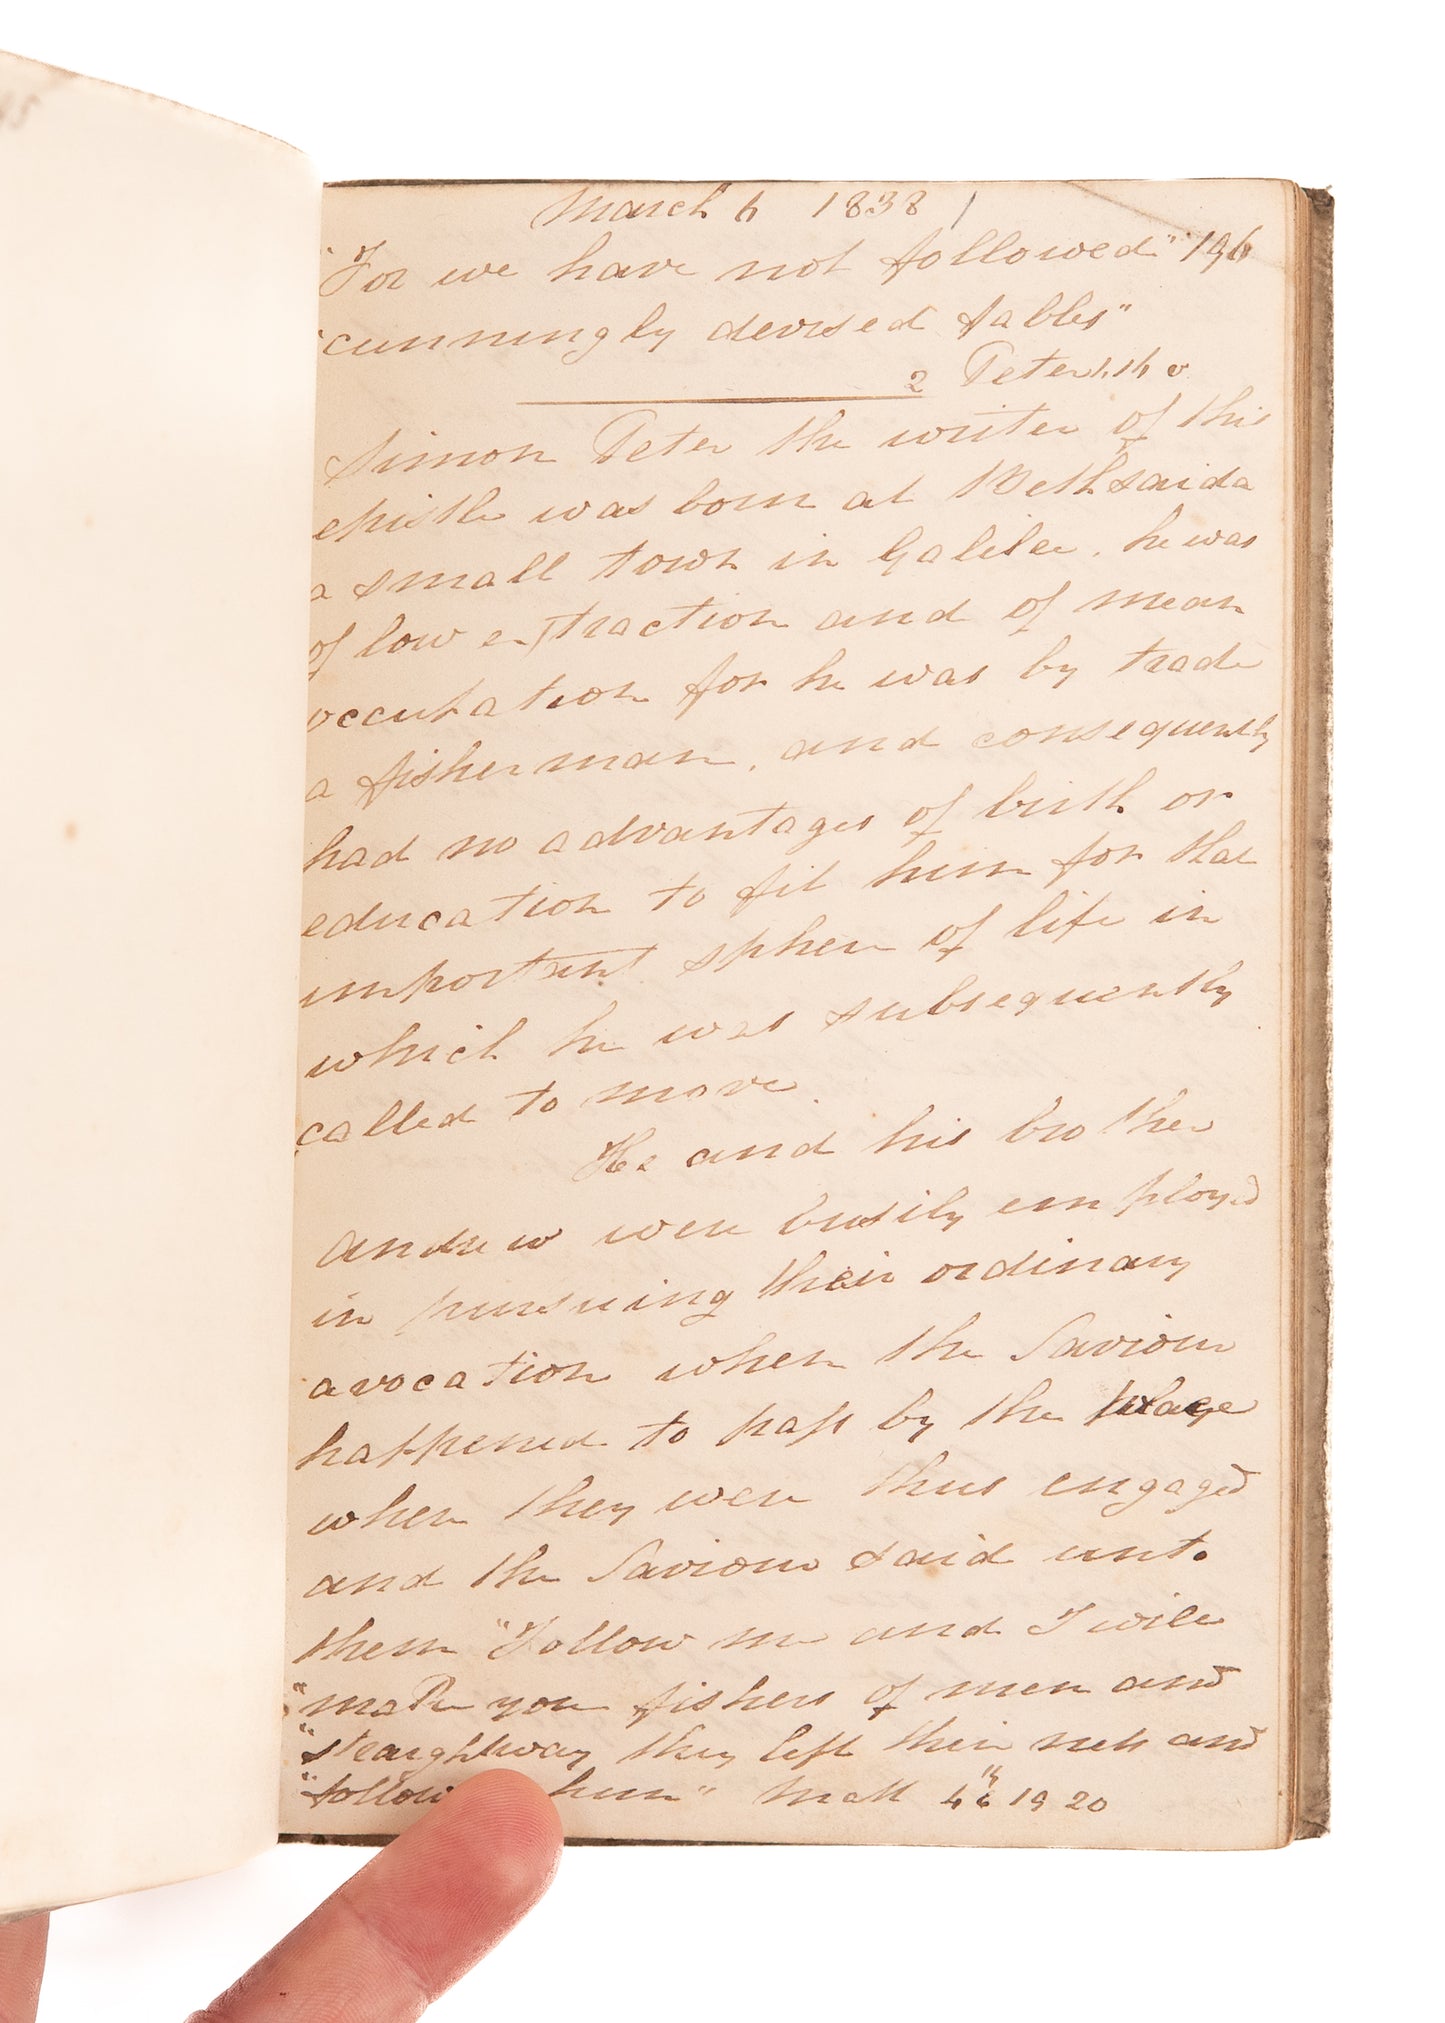 March 6 1838 /
"For we have not followed" 196
"cunningly devised fables"
2 Peter 1. 16 v
Simon Peter the writer of this
epistle was born at Bethsaida
a small town in Galilee, he was
of low extraction and of mean
occupation for he was by trade
a fisherman, and consequently
had no advantages of birth or
education to fit him for that
important sphere of life in
which he was subsequently
called to move.
He and his brother
Andrew were busily employed
in pursuing their ordinary
avocation when the Saviour
happened to pass by the place
when they were thus engaged
and the Saviour said unto
them "Follow me and I will
"make you fishers of men and
"straightway they left their nets and
"follow him" Matt 4 19 20